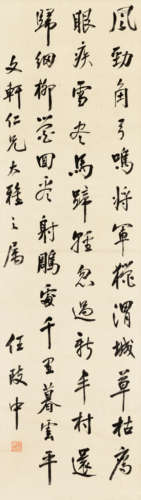 風勁角弓鳴將軍獵渭城草枯鷹
眼疾雪盡馬蹄輕忽過新丰村還
歸細柳營回看射雕處千里暮雲平
文軒仁兄大雅之屬
任中